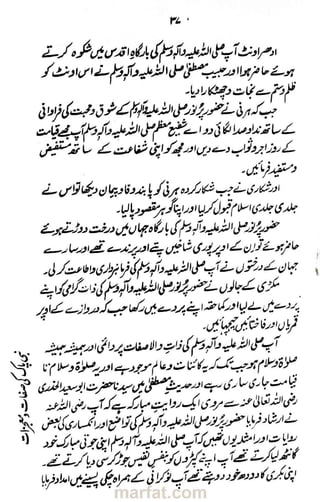 ۳۷
ادھر اونٹ آپ صلی اللہ علیہ وآلہ وسلم کی بارگاہِ اقدس میں شکوہ کرتے
ہوئے حاضر ہوا اور حبیب مصطفیٰ صلی اللہ علیہ وآلہ وسلم نے اس اونٹ کو
ظلم و ستم سے نجات و چھٹکارا دیا۔
جب کہ ہرنی نے حضور پر نور صلی اللہ علیہ وآلہ وسلم کے شوق و محبت کی فراوانی
کے ساتھ ندا و صدا لگائی دو اے شفیع معظم صلی اللہ علیہ وآلہ وسلم آپ مجھے قیامت
کے روز اجر و ثواب دے دیں اور مجھ کو اپنی شفاعت کے ساتھ مستفیض
و مستفید فرمائیں۔
اور شکاری نے جب شکار کردہ ہرنی کو پابند وفا و پیمان دیکھا تو اس نے
جلدی جلدی اسلام قبول کر لیا اور اپنا گوہر مقصود پا لیا۔
حضور پر نور صلی اللہ علیہ وآلہ وسلم کی بارگاہ جہاں میں درخت دوڑتے ہوئے
حاضر ہوئے تو ان کے اوپر پوری شاخیں پتے اور پرندے تھے اور سارے
جہان کے درختوں نے آپ صلی اللہ علیہ وآلہ وسلم کی فرمانبرداری و اطاعت کر لی۔
مکڑی کے جالوں نے حضور پر نور صلی اللہ علیہ وآلہ وسلم کی ذات گرامی کو اپنے
پردے میں لے لیا اور کما حقہ اپنے پردے میں رکھا جب کہ دروازے کے اوپر
قمریاں اور فاختائیں چہچہائیں۔
آپ صلی اللہ علیہ وآلہ وسلم کی ذات والا صفات پر دائمی اور ہمیشہ ہمیشہ
صلوٰۃ و سلام ہو جب تک کہ یہ کائنات و عالم موجود ہے اور یہ صلوٰۃ و سلام تا
قیامت جاری و ساری رہے اور حدیث مصطفیٰ میں سیدنا حضرت ابو سعید الخدری
رضی اللہ تعالیٰ عنہ سے مروی ایک روایت مبارکہ ہے کہ آپ رضی اللہ عنہ
نے ارشاد فرمایا حضور پر نور صلی اللہ علیہ وآلہ وسلم کی تواضع اور انکساری کی بعض
روایات اور امثلہ یوں تھیں کہ آپ صلی اللہ علیہ وآلہ وسلم اپنی جوتی مبارک خود
گانٹھ لیا کرتے تھے آپ اپنے کپڑوں کو بنفس نفیس جوڑ کر سی دیا کرتے تھے۔
اپنی بکری کا دودھ خود دوہتے تھے آپ نوکرانی کے ہمراہ چکی پیسنے میں امداد فرمایا
نبی پاک کی صفات و معجزات
marfat.com